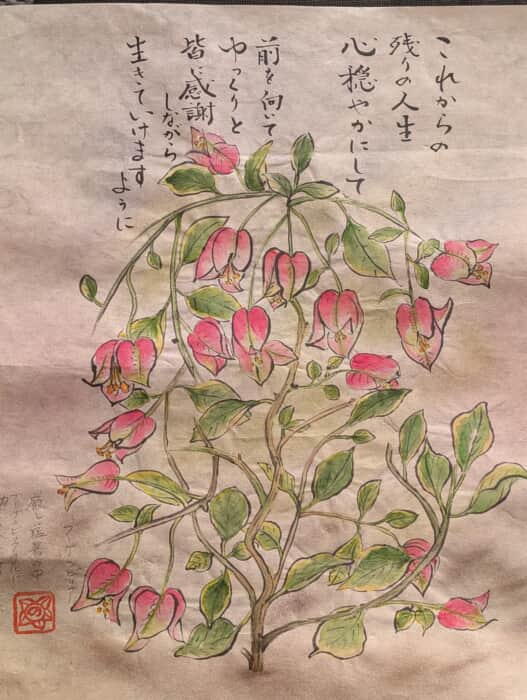 これからの
残りの人生
心穏やかにして
前を向いて
ゆっくりと
皆に感謝
しながら
生きていけます
ように